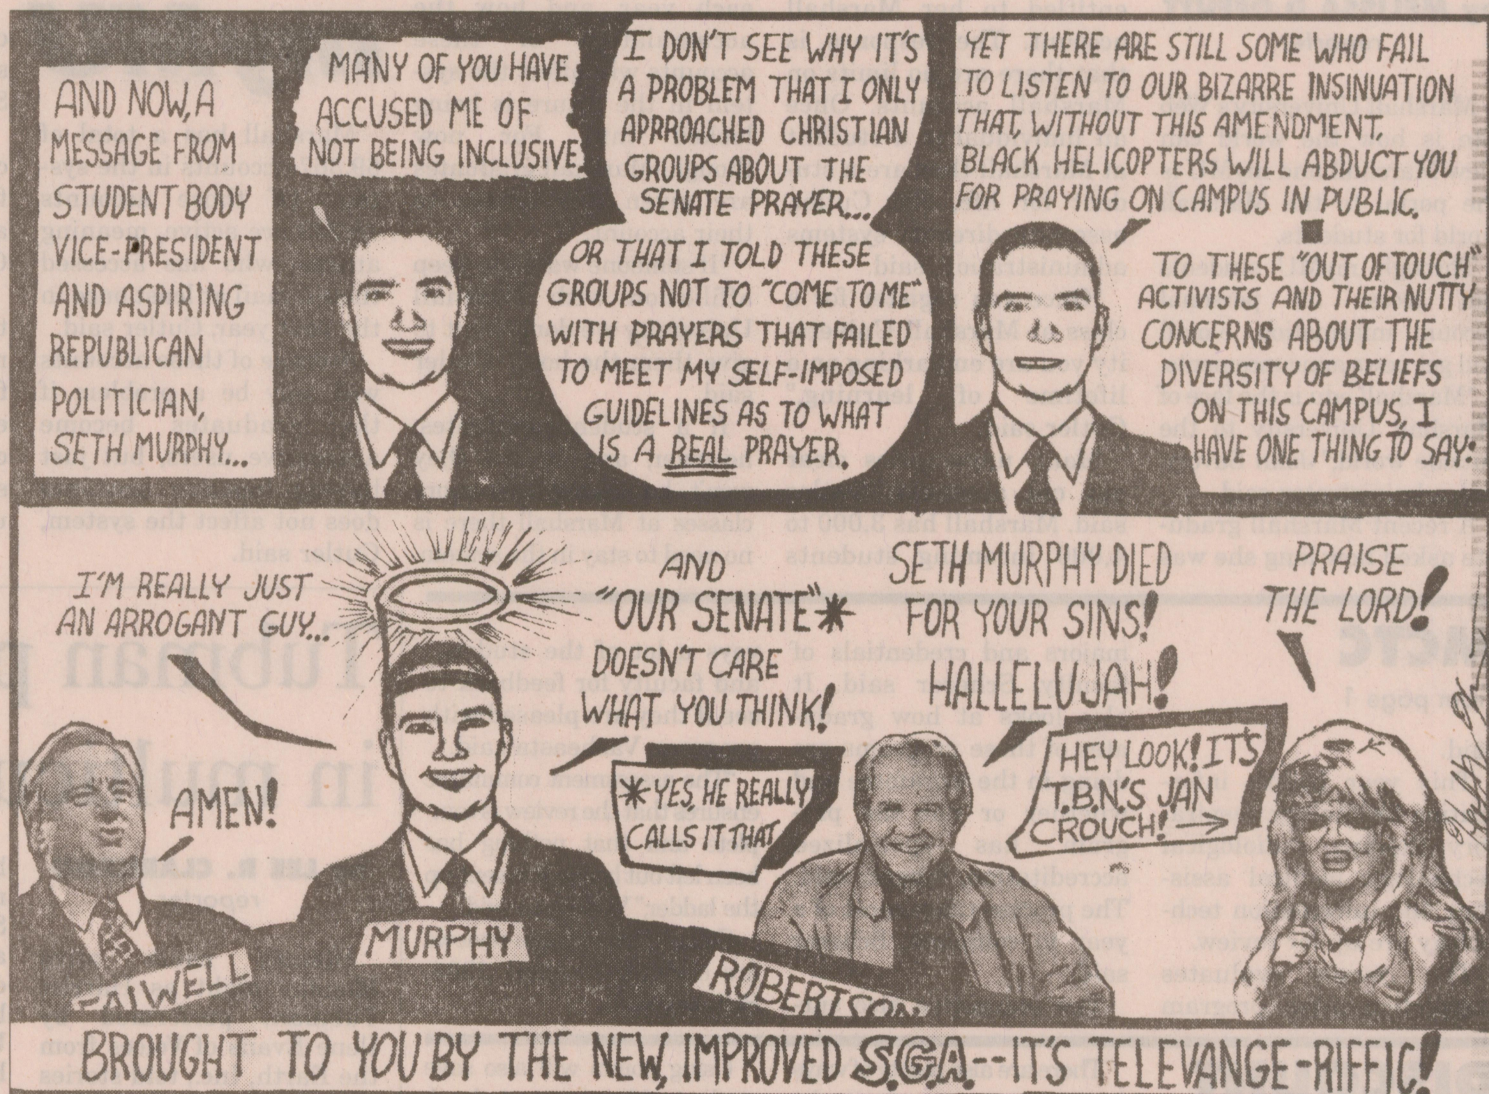 AND NOW, A
MESSAGE FROM
STUDENT BODY
VICE-PRESIDENT
AND ASPIRING
REPUBLICAN
POLITICIAN,
SETH MURPHY...
MANY OF YOU HAVE
ACCUSED ME OF
NOT BEING INCLUSIVE
I DON'T SEE WHY IT'S
A PROBLEM THAT I ONLY
APRROACHED CHRISTIAN
GROUPS ABOUT THE
SENATE PRAYER...
OR THAT I TOLD THESE
GROUPS NOT TO "COME TO ME"
WITH PRAYERS THAT FAILED
TO MEET MY SELF-IMPOSED
GUIDELINES AS TO WHAT
IS A REAL PRAYER.
YET THERE ARE STILL SOME WHO FAIL
TO LISTEN TO OUR BIZARRE INSINUATION
THAT, WITHOUT THIS AMENDMENT,
BLACK HELICOPTERS WILL ABDUCT YOU
FOR PRAYING ON CAMPUS IN PUBLIC.
TO THESE "OUT OF TOUCH"
ACTIVISTS AND THEIR NUTTY
CONCERNS ABOUT THE
DIVERSITY OF BELIEFS
ON THIS CAMPUS, I
HAVE ONE THING TO SAY:
I'M REALLY JUST
AN ARROGANT GUY...
AMEN!
FALWELL
MURPHY
AND
"OUR SENATE"*
DOESN'T CARE
WHAT YOU THINK!
* YES, HE REALLY
CALLS IT THAT
SETH MURPHY DIED
FOR YOUR SINS!
HALLELUJAH!
ROBERTSON
HEY LOOK! IT'S
T.B.N.'S JAN
CROUCH! →
PRAISE
THE LORD!
BROUGHT TO YOU BY THE NEW, IMPROVED S.G.A.--IT'S TELEVANGE-RIFFIC!